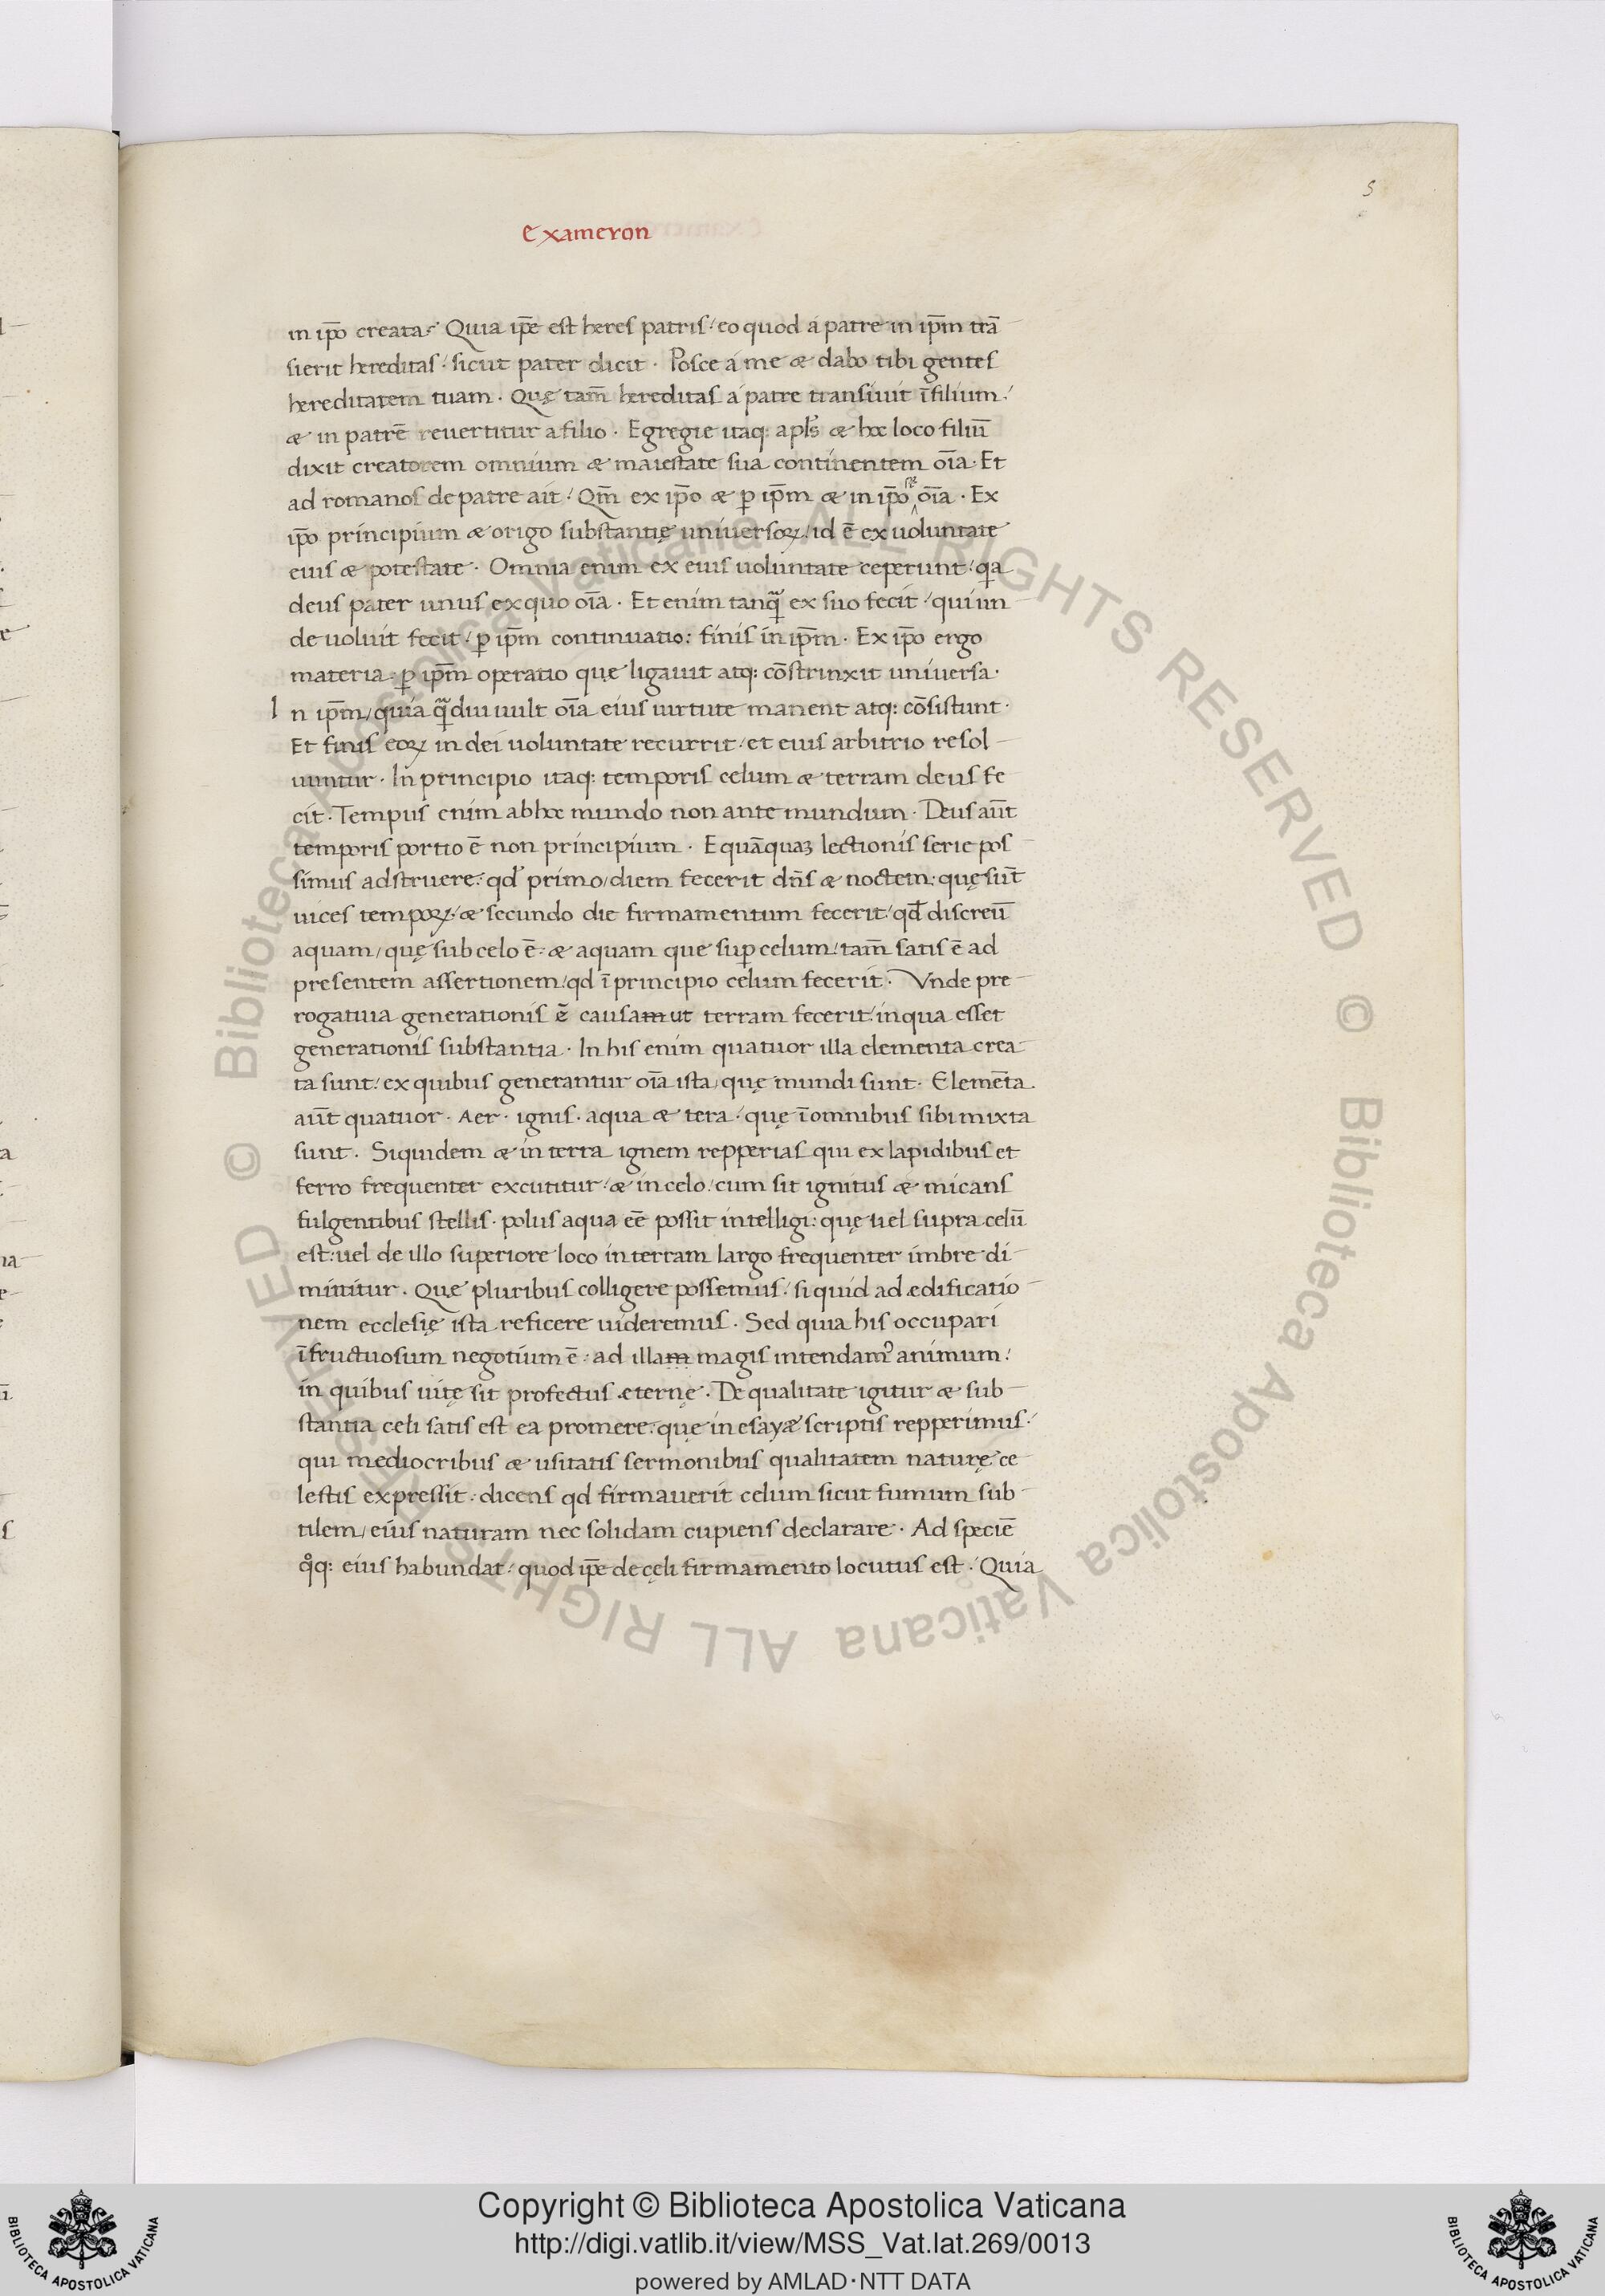 5
Exameron
in ip̄o creata. Quia ip̄e est heres patris / eo quod a patre in ip̄m trā
sierit hereditas / sicut pater dicit · Posce a me & dabo tibi gentes
hereditatem tuam · Quę tam̄ hereditas a patre transiuit ī filium /
& in patrē reuertitur a filio · Egregie itaq: apl̄s & hoc loco filiū
dixit creatorem omnium & maiestate sua continentem oīa · Et
ad romanos de patre ait / Qm̄ ex ip̄o & ꝑ ip̄m & in ip̄o oīa · Ex
ip̄o principium & origo substantię uniuersoꝝ / id ē ex uoluntate
eius & potestate · Omnia enim ex eius uoluntate ceperunt / qa
deus pater unus ex quo oīa · Et enim tanq̄ ex suo fecit / qui un
de uoluit fecit / ꝑ ip̄m continuatio: finis in ip̄m · Ex ip̄o ergo
materia · ꝑ ip̄m operatio quę ligauit atq: cōstrinxit uniuersa ·
I n ip̄m / quia q̄diu uult oīa eius uirtute manent atq: cōsistunt ·
Et finis eoꝝ in dei uoluntate recurrit / et eius arbitrio resol
uuntur · In principio itaq: temporis celum & terram deus fe
cit · Tempus enim ab hoc mundo non ante mundum · Deus aūt
temporis portio ē non principium · E quāquaꝫ lectionis serie pos
simus adstruere / qd̄ primo / diem fecerit dn̄s & noctem: quę sūt
uices tempoꝝ / & secundo die firmamentum fecerit / qd̄ discreū
aquam / quę sub celo ē / & aquam que suꝑ celum / tam̄ satis ē ad
presentem assertionem / qd ī principio celum fecerit · Vnde pre
rogatiua generationis ē causam ut terram fecerit / in qua esset
generationis substantia · In his enim quatuor illa elementa crea
ta sunt / ex quibus generantur oīa ista / quę mundi sunt · Elemēta
aūt quatuor · Aer · ignis · aqua & tera / quę ī omnibus sibi mixta
sunt · Siquidem & in terra ignem repperias qui ex lapidibus et
ferro frequenter excutitur / & in celo / cum sit ignitus & micans
fulgentibus stellis · polus aqua eē possit intelligi: quę uel supra celū
est: uel de illo superiore loco in terram largo frequenter imbre di
mittitur · Quę pluribus colligere possemus / si quid ad ędificatio
nem ecclesię ista reficere uideremus · Sed quia his occupari
ī fructuosum negotium ē / ad illam magis intendam᾿ animum /
in quibus uitę sit profectus ęternę · De qualitate igitur & sub
stantia celi satis est ea promere / quę in esayæ scriptis repperimus /
qui mediocribus & usitatis sermonibus qualitatem naturę ce
lestis expressit / dicens qd firmauerit celum sicut fumum sub
tilem / eius naturam nec solidam cupiens declarare · Ad speciē
qͦq: eius habundat / quod ip̄e de cęli firmamento locutus est · Quia
© Biblioteca Apostolica Vaticana ALL RIGHTS RESERVED © Biblioteca Apostolica Vaticana ALL RIGHTS RESERVED
BIBLIOTECA APOSTOLICA VATICANA
Copyright © Biblioteca Apostolica Vaticana
http://digi.vatlib.it/view/MSS_Vat.lat.269/0013
powered by AMLAD·NTT DATA
BIBLIOTECA APOSTOLICA VATICANA